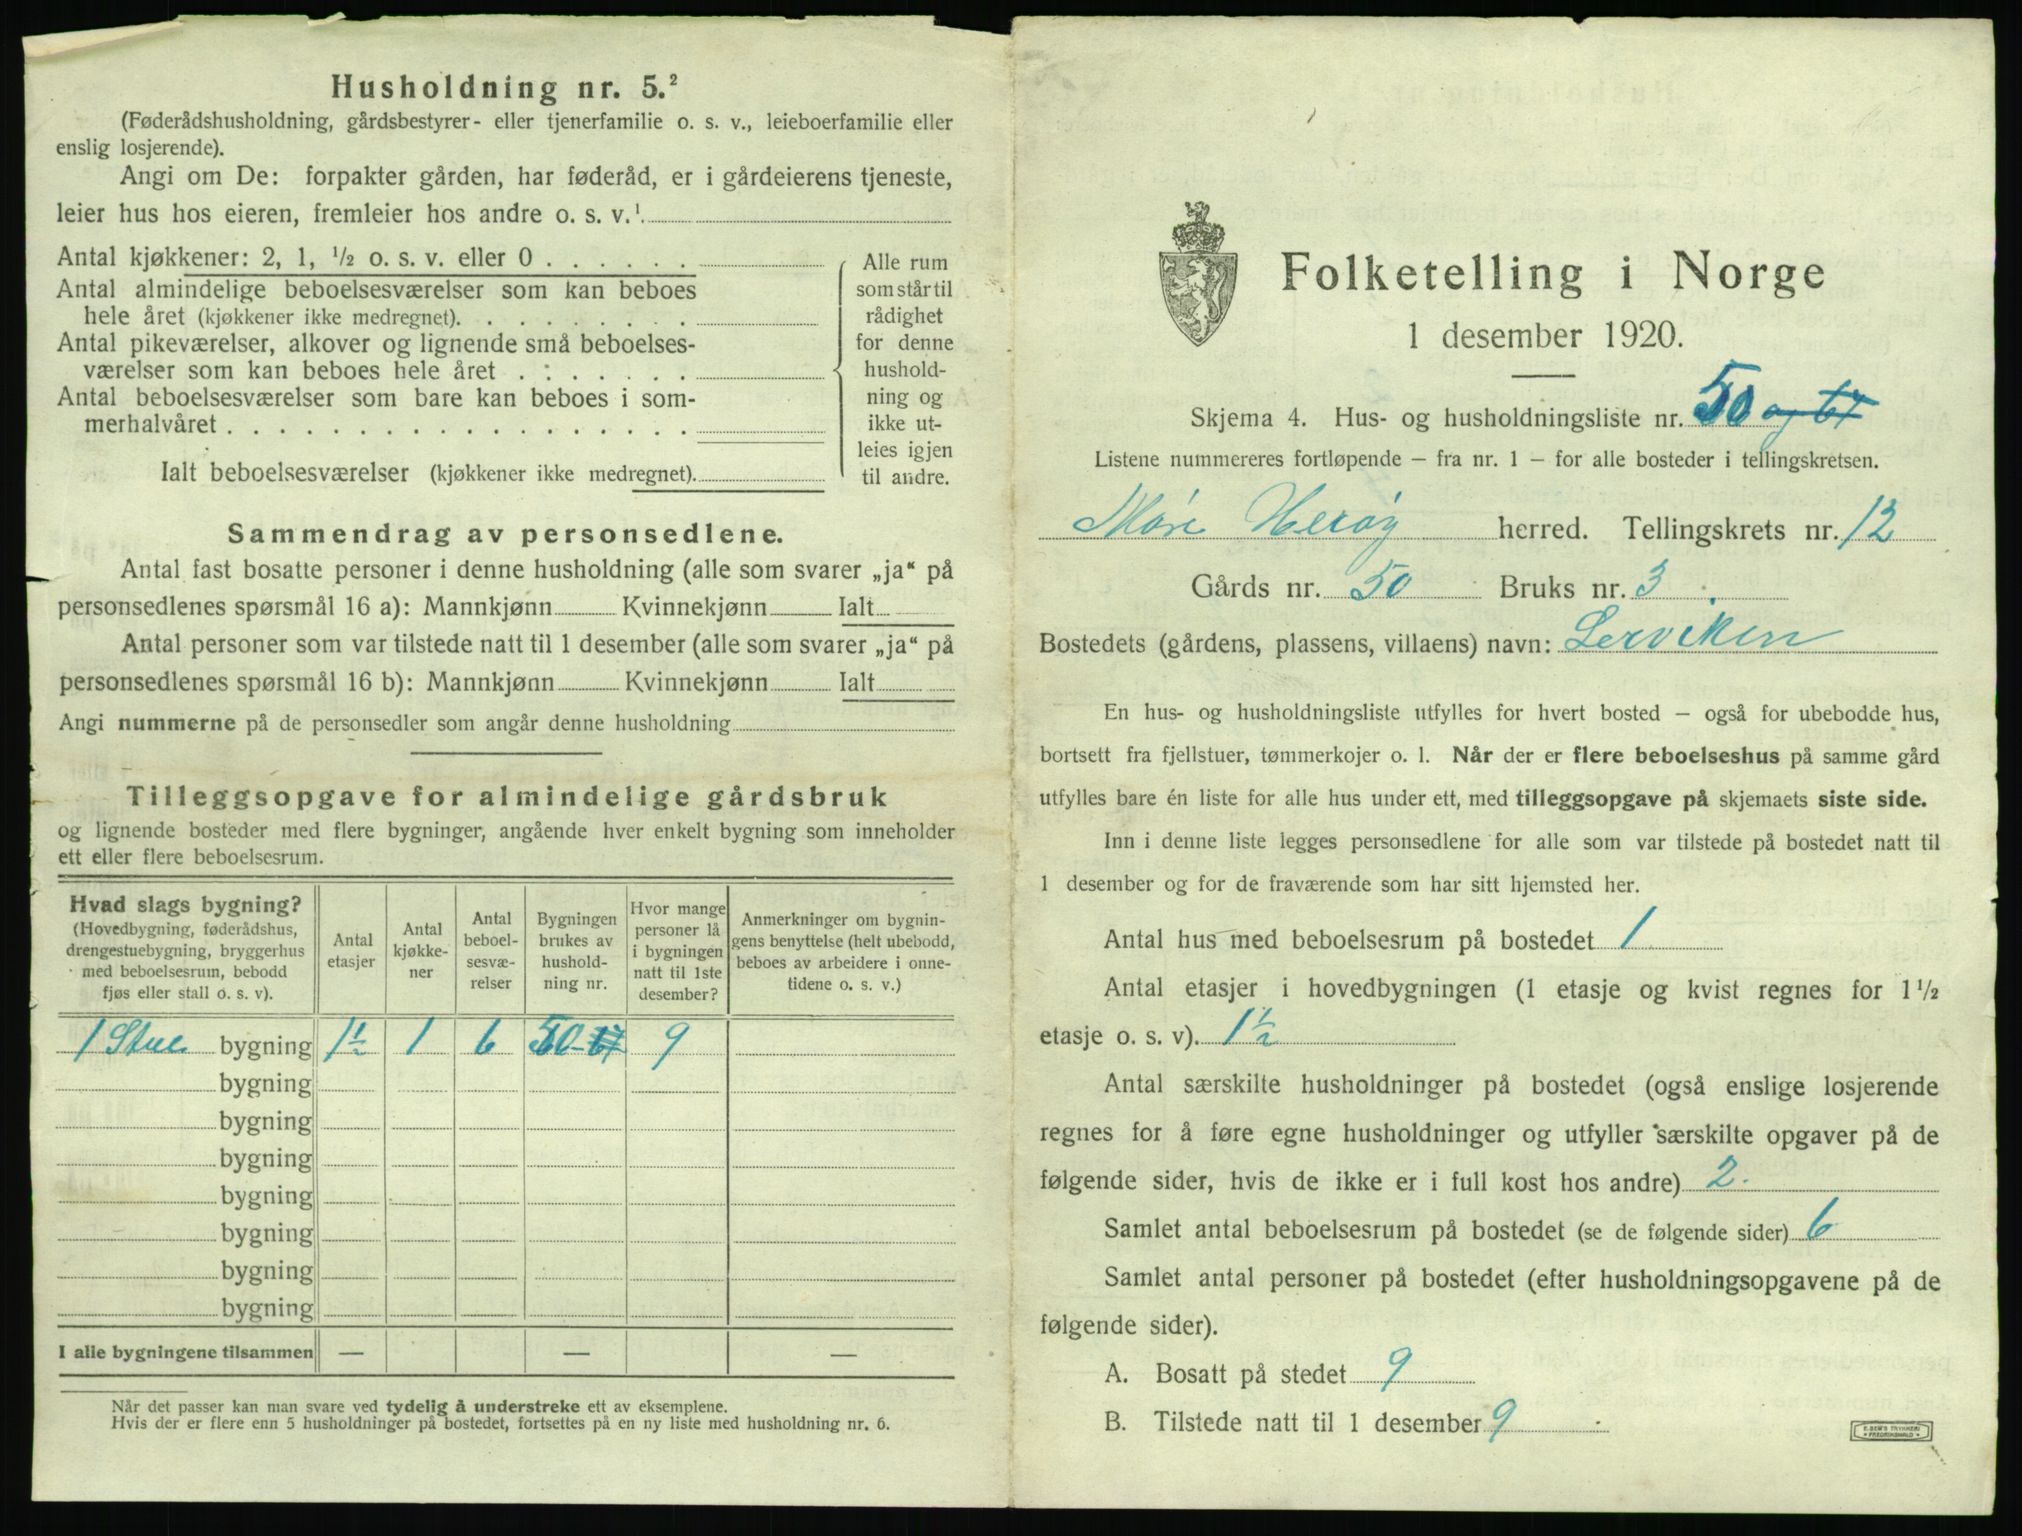 Husholdning nr. 5.²
(Føderådshusholdning, gårdsbestyrer- eller tjenerfamilie o. s. v., leieboerfamilie eller
enslig losjerende).
Angi om De: forpakter gården, har føderåd, er i gårdeierens tjeneste,
leier hus hos eieren, fremleier hos andre o. s. v.¹
Antal kjøkkener: 2, 1, ½ o. s. v. eller 0
Antal almindelige beboelsesværelser som kan beboes
hele året (kjøkkener ikke medregnet).
Antal pikeværelser, alkover og lignende små beboelses-
værelser som kan beboes hele året
Antal beboelsesværelser som bare kan beboes i som-
merhalvåret
Ialt beboelsesværelser (kjøkkener ikke medregnet).
Alle rum
som står til
rådighet
for denne
hushold-
ning og
ikke ut-
leies igjen
til andre.
Sammendrag av personsedlene.
Antal fast bosatte personer i denne husholdning (alle som svarer „ja“ på
personsedlenes spørsmål 16 a): Mannkjønn Kvinnekjønn Ialt
Antal personer som var tilstede natt til 1 desember (alle som svarer „ja“ på
personsedlenes spørsmål 16 b): Mannkjønn Kvinnekjønn Ialt
Angi nummerne på de personsedler som angår denne husholdning
Tilleggsopgave for almindelige gårdsbruk
og lignende bosteder med flere bygninger, angående hver enkelt bygning som inneholder
ett eller flere beboelsesrum.
Hvad slags bygning?
(Hovedbygning, føderådshus,
drengestuebygning, bryggerhus
med beboelsesrum, bebodd
fjøs eller stall o. s. v).
Antal
etasjer
Antal
kjøkke-
ner
Antal
beboel-
sesvæ-
relser
Bygningen
brukes av
hushold-
ning nr.
Hvor mange
personer lå
i bygningen
natt til 1ste
desember?
Anmerkninger om bygnin-
gens benyttelse (helt ubebodd,
beboes av arbeidere i onne-
tidene o. s. v.)
1 Stue bygning 1½ 1 6 50-67 9
bygning
bygning
bygning
bygning
bygning
bygning
bygning
I alle bygningene tilsammen — — —
Når det passer kan man svare ved tydelig å understreke ett av eksemplene.
Hvis der er flere enn 5 husholdninger på bostedet, fortsettes på en ny liste med husholdning nr. 6.
Folketelling i Norge
1 desember 1920.
Skjema 4. Hus- og husholdningsliste nr. 50 og 67
Listene nummereres fortløpende – fra nr. 1 – for alle bosteder i tellingskretsen.
Møre Herøy herred. Tellingskrets nr. 12
Gårds nr. 50 Bruks nr. 3
Bostedets (gårdens, plassens, villaens) navn: Lerviken
En hus- og husholdningsliste utfylles for hvert bosted – også for ubebodde hus,
bortsett fra fjellstuer, tømmerkojer o. l. Når der er flere beboelseshus på samme gård
utfylles bare én liste for alle hus under ett, med tilleggsopgave på skjemaets siste side.
Inn i denne liste legges personsedlene for alle som var tilstede på bostedet natt til
1 desember og for de fraværende som har sitt hjemsted her.
Antal hus med beboelsesrum på bostedet 1
Antal etasjer i hovedbygningen (1 etasje og kvist regnes for 1½
etasje o. s. v). 1½
Antal særskilte husholdninger på bostedet (også enslige losjerende
regnes for å føre egne husholdninger og utfyller særskilte opgaver på de
følgende sider, hvis de ikke er i full kost hos andre) 2.
Samlet antal beboelsesrum på bostedet (se de følgende sider) 6
Samlet antal personer på bostedet (efter husholdningsopgavene på de
følgende sider).
A. Bosatt på stedet 9
B. Tilstede natt til 1 desember 9